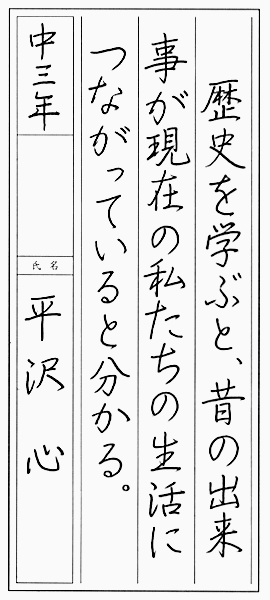 歴史を学ぶと、昔の出来
事が現在の私たちの生活に
つながっていると分かる。
中三年
氏名
平沢 心